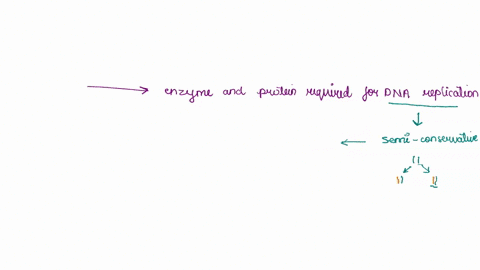 enzyme and protein required for DNA replication
semi-conservative